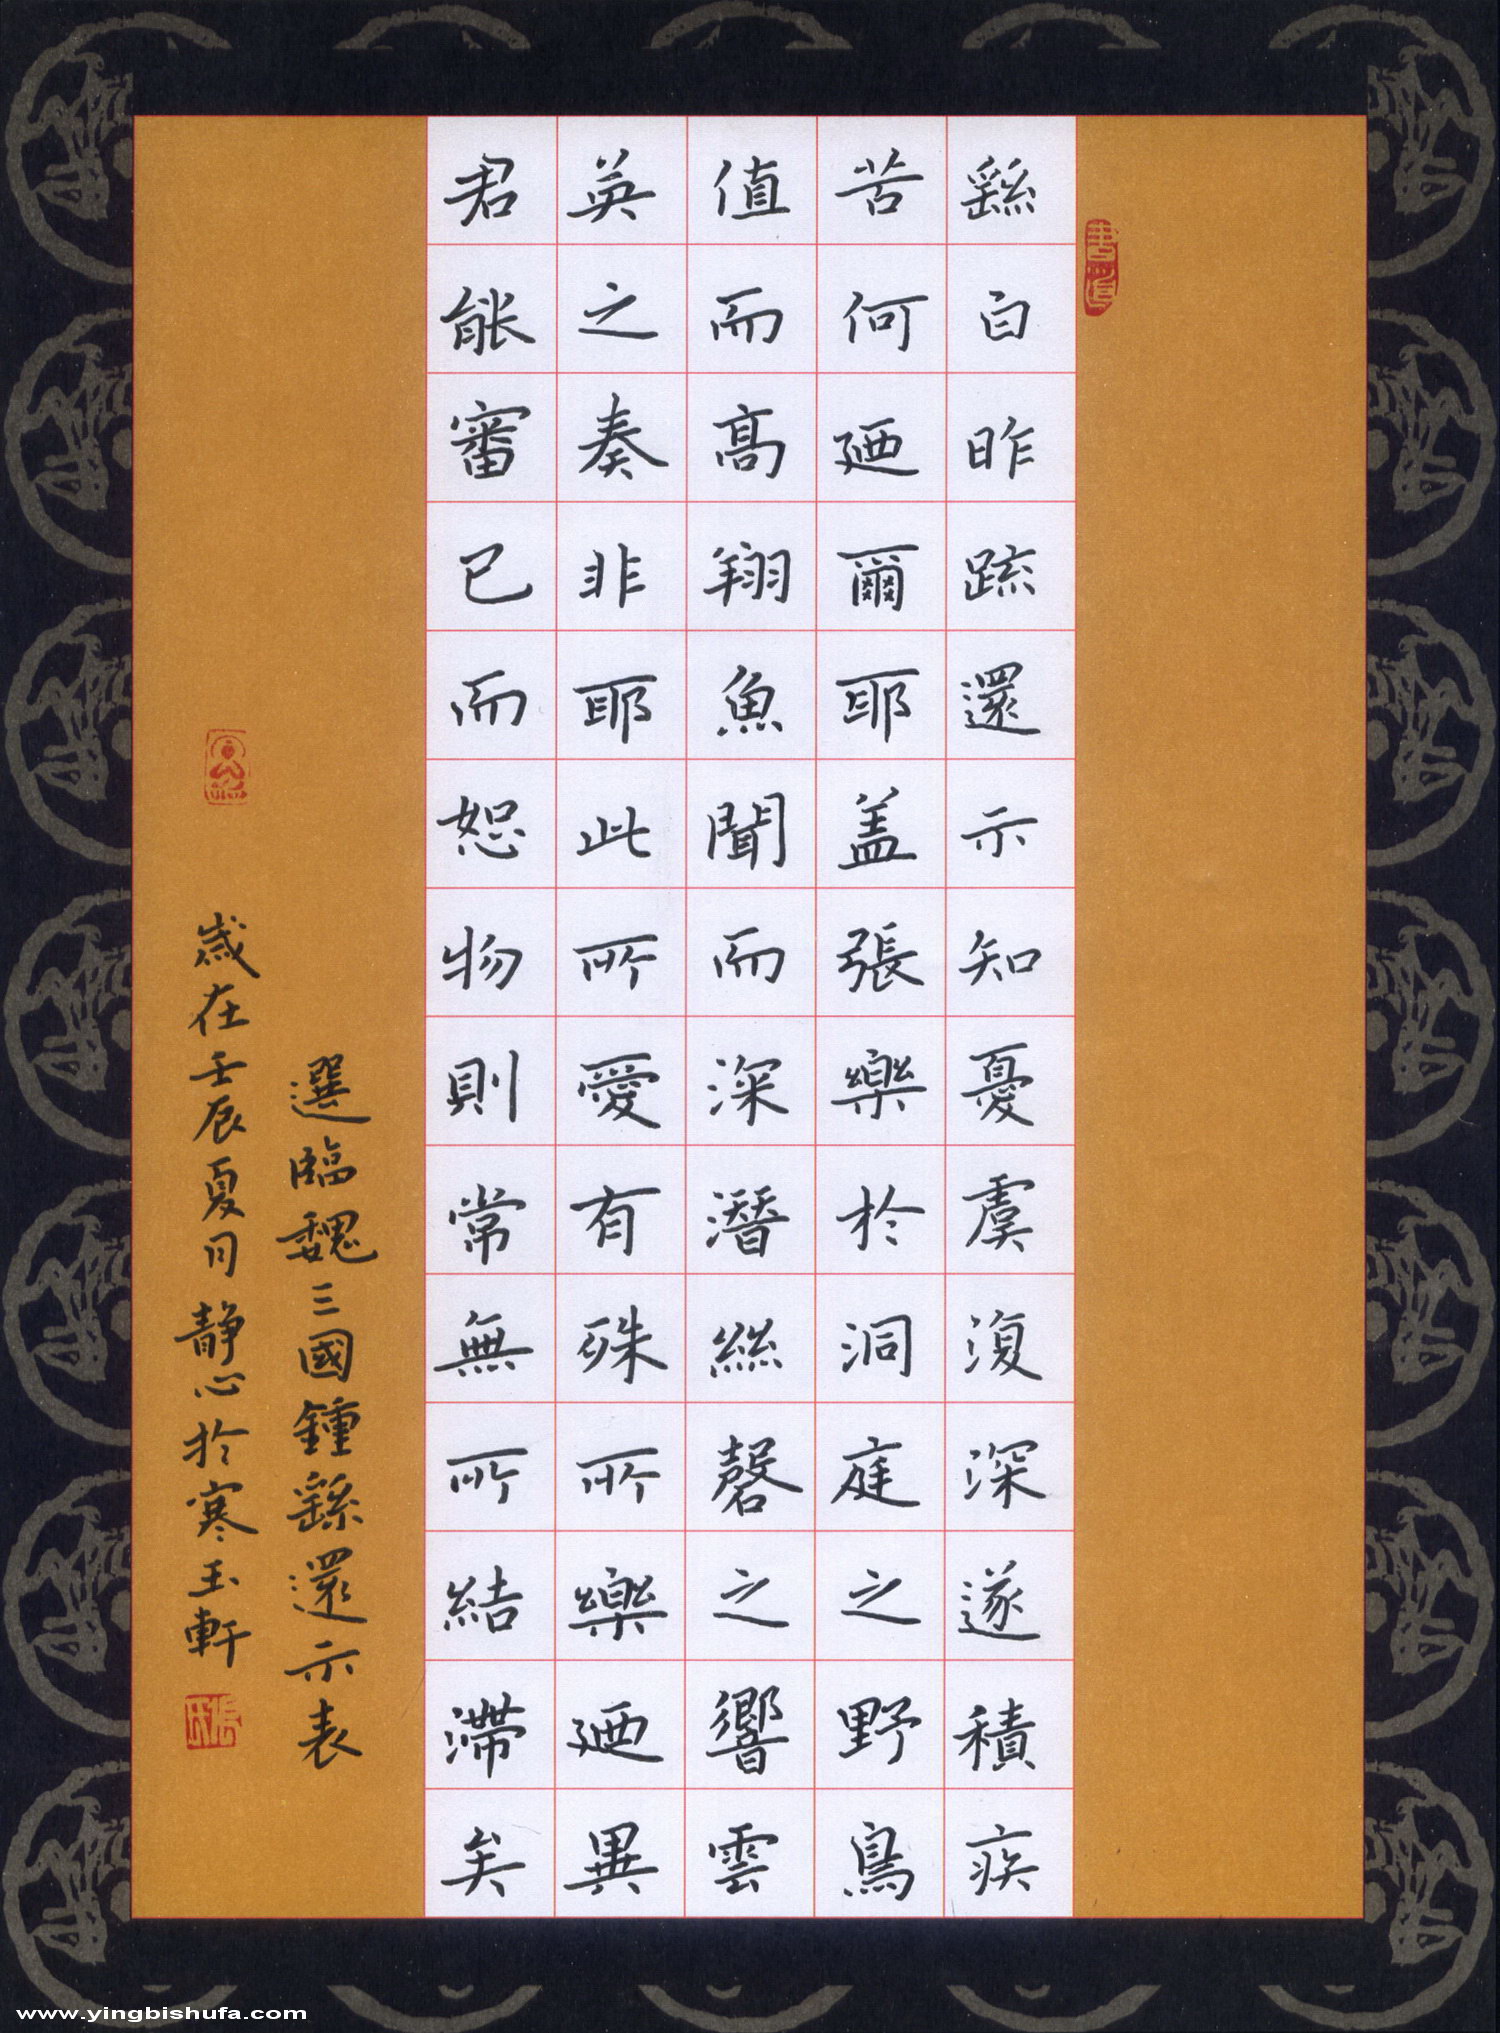 繇白昨疏還示知憂虞復深遂積疾
苦何迺爾耶蓋張樂於洞庭之野鳥
值而高翔魚聞而深潛絲磬之響雲
英之奏非耶此所愛有殊所樂迺異
君能審己而恕物則常無所結滯矣
選臨魏三國鍾繇還示表
歲在壬辰夏月靜心於寒玉軒
www.yingbishufa.com